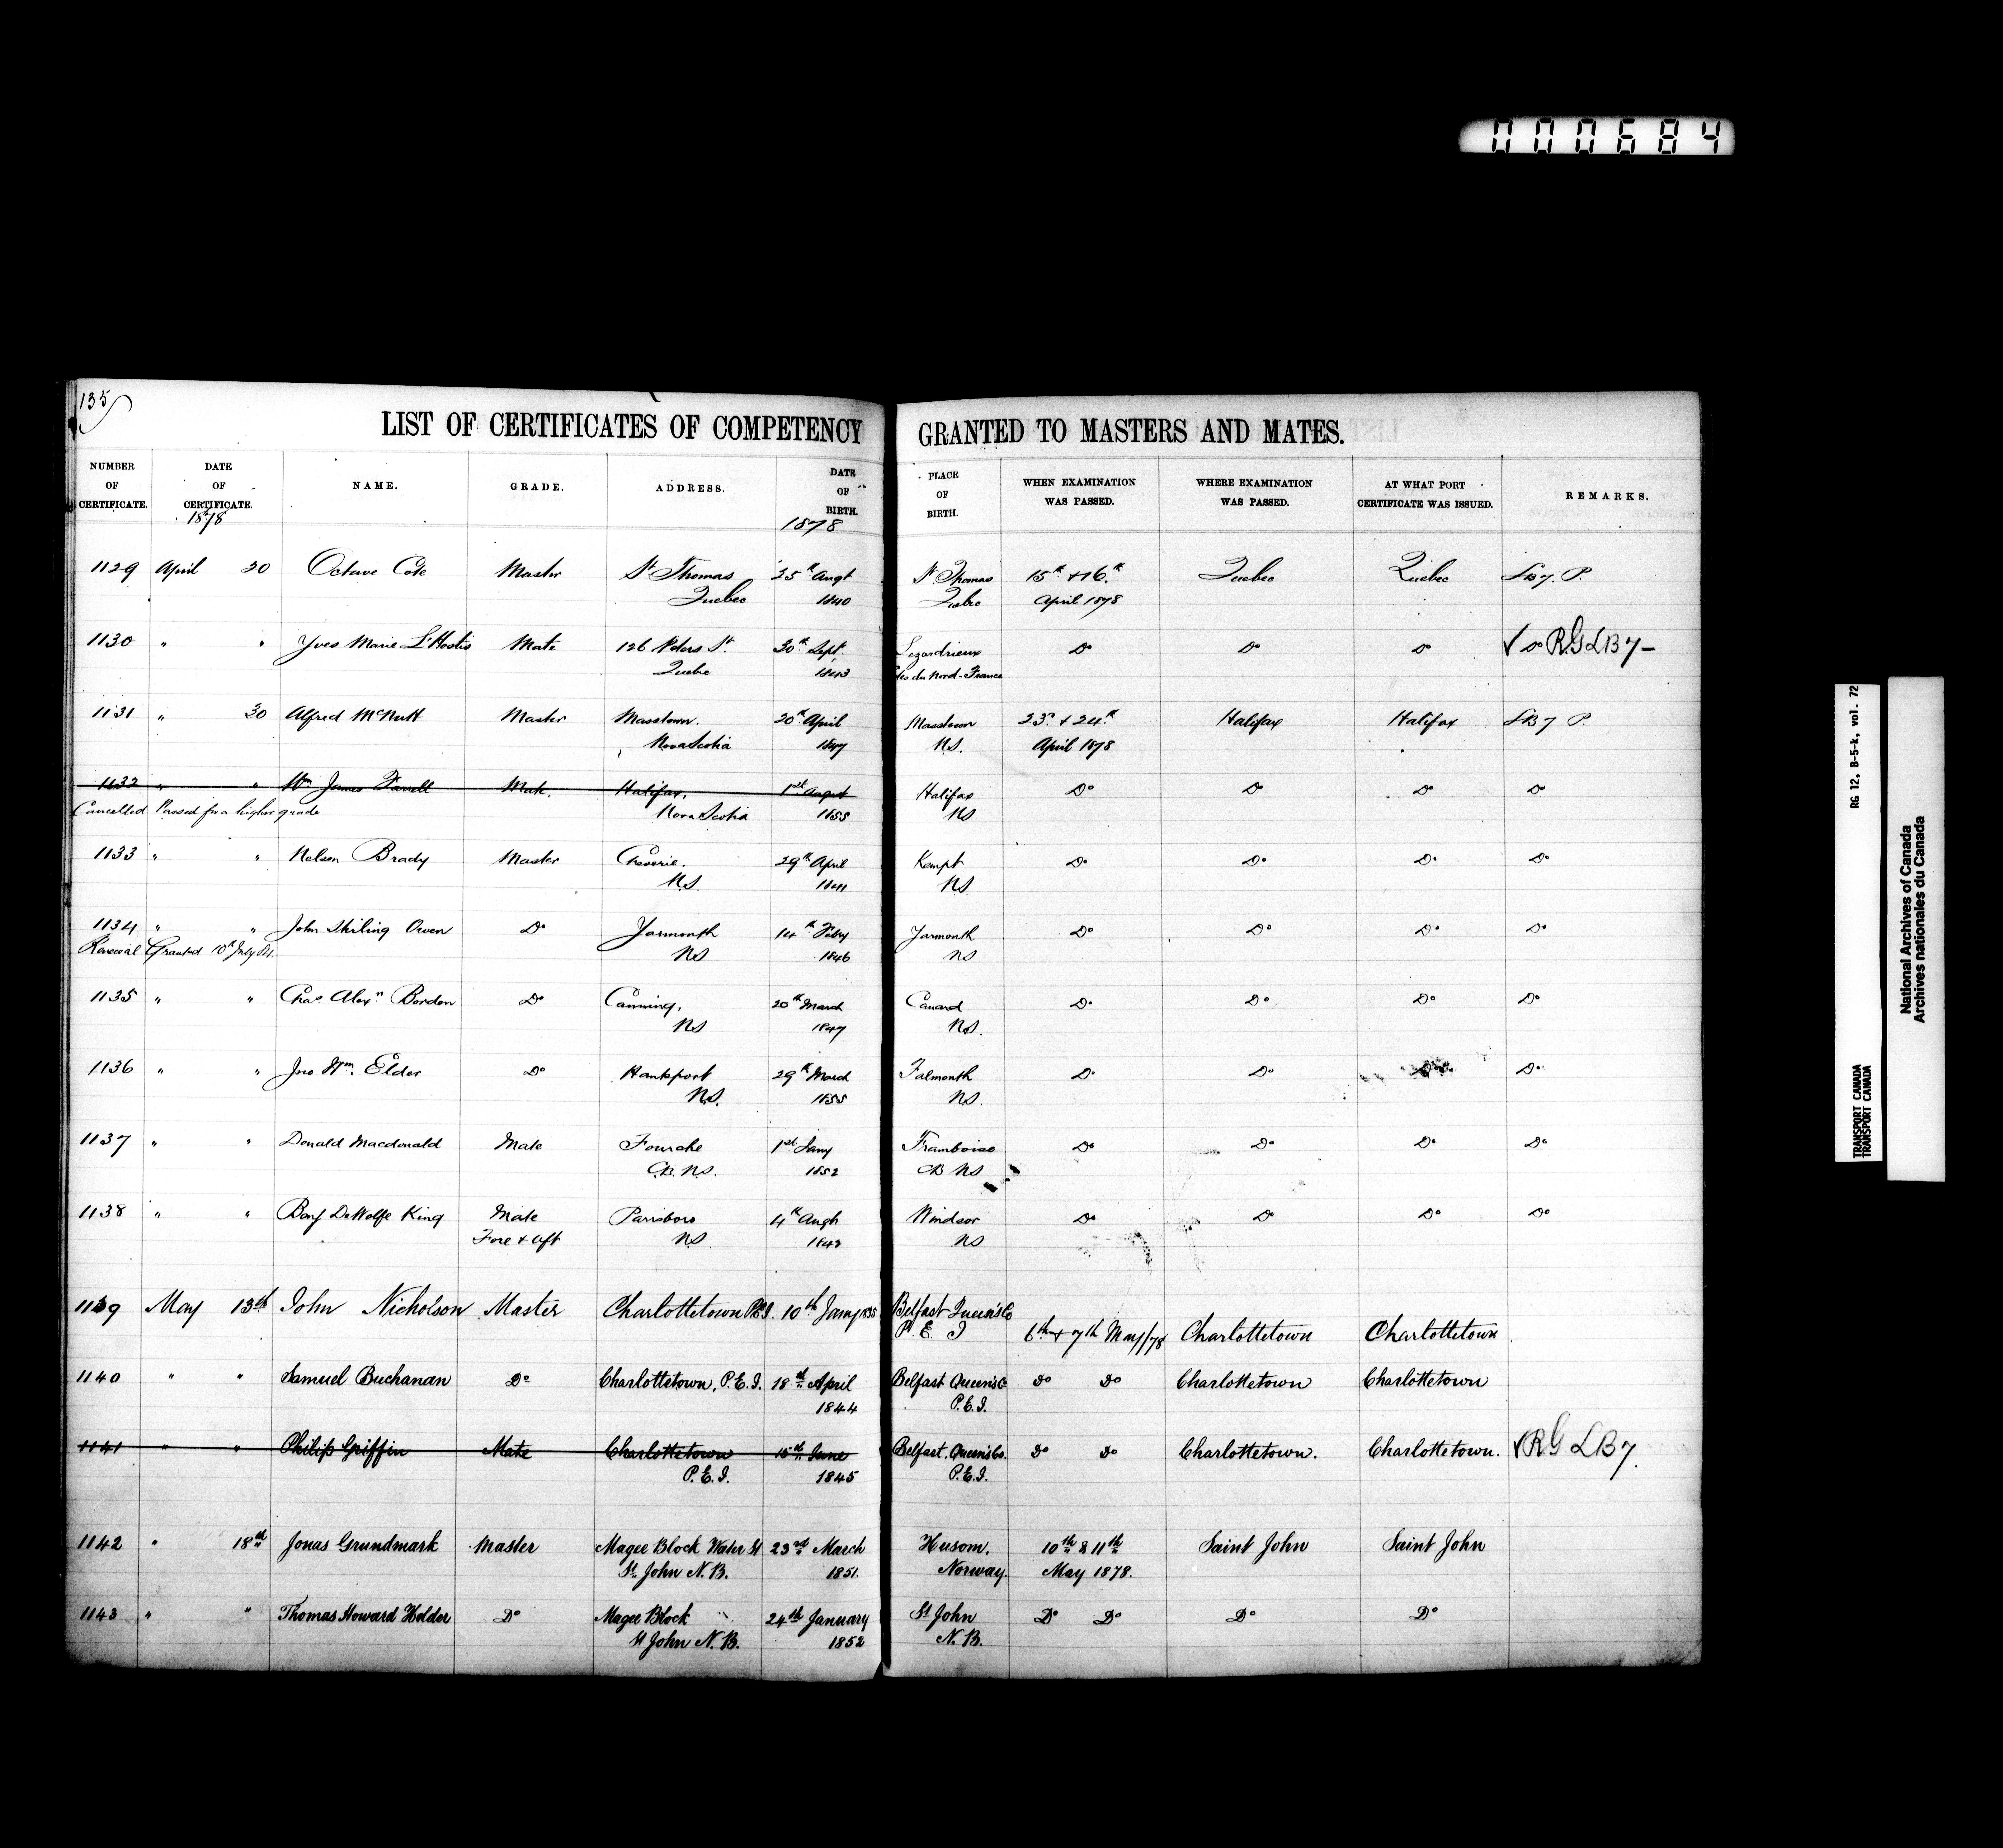 000684
135
LIST OF CERTIFICATES OF COMPETENCY GRANTED TO MASTERS AND MATES.
NUMBER OF CERTIFICATE. DATE OF CERTIFICATE. NAME. GRADE. ADDRESS. DATE OF BIRTH. PLACE OF BIRTH. WHEN EXAMINATION WAS PASSED. WHERE EXAMINATION WAS PASSED. AT WHAT PORT CERTIFICATE WAS ISSUED. REMARKS.
1878 1878
1129 April 20 Octave Cote Master St Thomas 25th Augt St Thomas 15th & 16th Quebec Quebec LB 7. P.
Quebec 1840 Quebec April 1878
1130 " " Yves Marie L'Hostis Mate 126 Peters St. 30th Sept. Lezardrieux Do Do Do ✓ Do RG LB 7 -
Quebec 1843 Côtes du Nord - France
1131 " 30 Alfred McNutt Master Masstown. 20th April Masstown 23d & 24th Halifax Halifax LB 7 P.
Nova Scotia 1847 N.S. April 1878
1132 " " Wm James Farrell Mate. Halifax, 1st August Halifax Do Do Do Do
Cancelled Passed for a higher grade Nova Scotia 1855 NS
1133 " " Nelson Brady Master Cheverie. 29th April Kempt Do Do Do Do
N.S. 1841 NS.
1134 " " John Stirling Owen Do Yarmouth 14th Feby Yarmouth Do Do Do Do
Renewal Granted 10th July NS 1846 NS
1135 " " Chas Alexr Borden Do Canning, 20th March Canard Do Do Do Do
NS 1847 NS.
1136 " " Jno Wm. Elder Do Hantsport 29th March Falmouth Do Do Do Do
N.S. 1855 NS.
1137 " " Donald Macdonald Mate Fourche 1st Jany Framboise Do Do Do Do
C.B. N.S. 1852 CB NS
1138 " " Benj DeWolfe King Mate Parrsboro 4th Augt Windsor Do Do Do Do
Fore & Aft NS 1842 NS
1139 May 13th John Nicholson Master Charlottetown P.E.I. 10th Jany 1835 Belfast Queens Co
P. E. I 6th & 7th May/78 Charlottetown Charlottetown
1140 " " Samuel Buchanan Do Charlottetown, P.E.I. 18th April Belfast Queens Co Do Do Charlottetown Charlottetown
1844 P.E.I.
1141 " " Philip Griffin Mate Charlottetown 15th June Belfast, Queens Co. Do Do Charlottetown. Charlottetown. ✓ RG LB 7.
P.E.I. 1845 P.E.I.
1142 " 18th Jonas Grundmark Master Magee Block Water St 23rd March Husom. 10th & 11th Saint John Saint John
St. John N.B. 1851. Norway. May 1878.
1143 " " Thomas Howard Holder Do Magee Block 24th January St John Do Do Do Do
St John N.B. 1852 N.B.
TRANSPORT CANADA RG 12, B-5-k, vol. 72
TRANSPORT CANADA
National Archives of Canada
Archives nationales du Canada